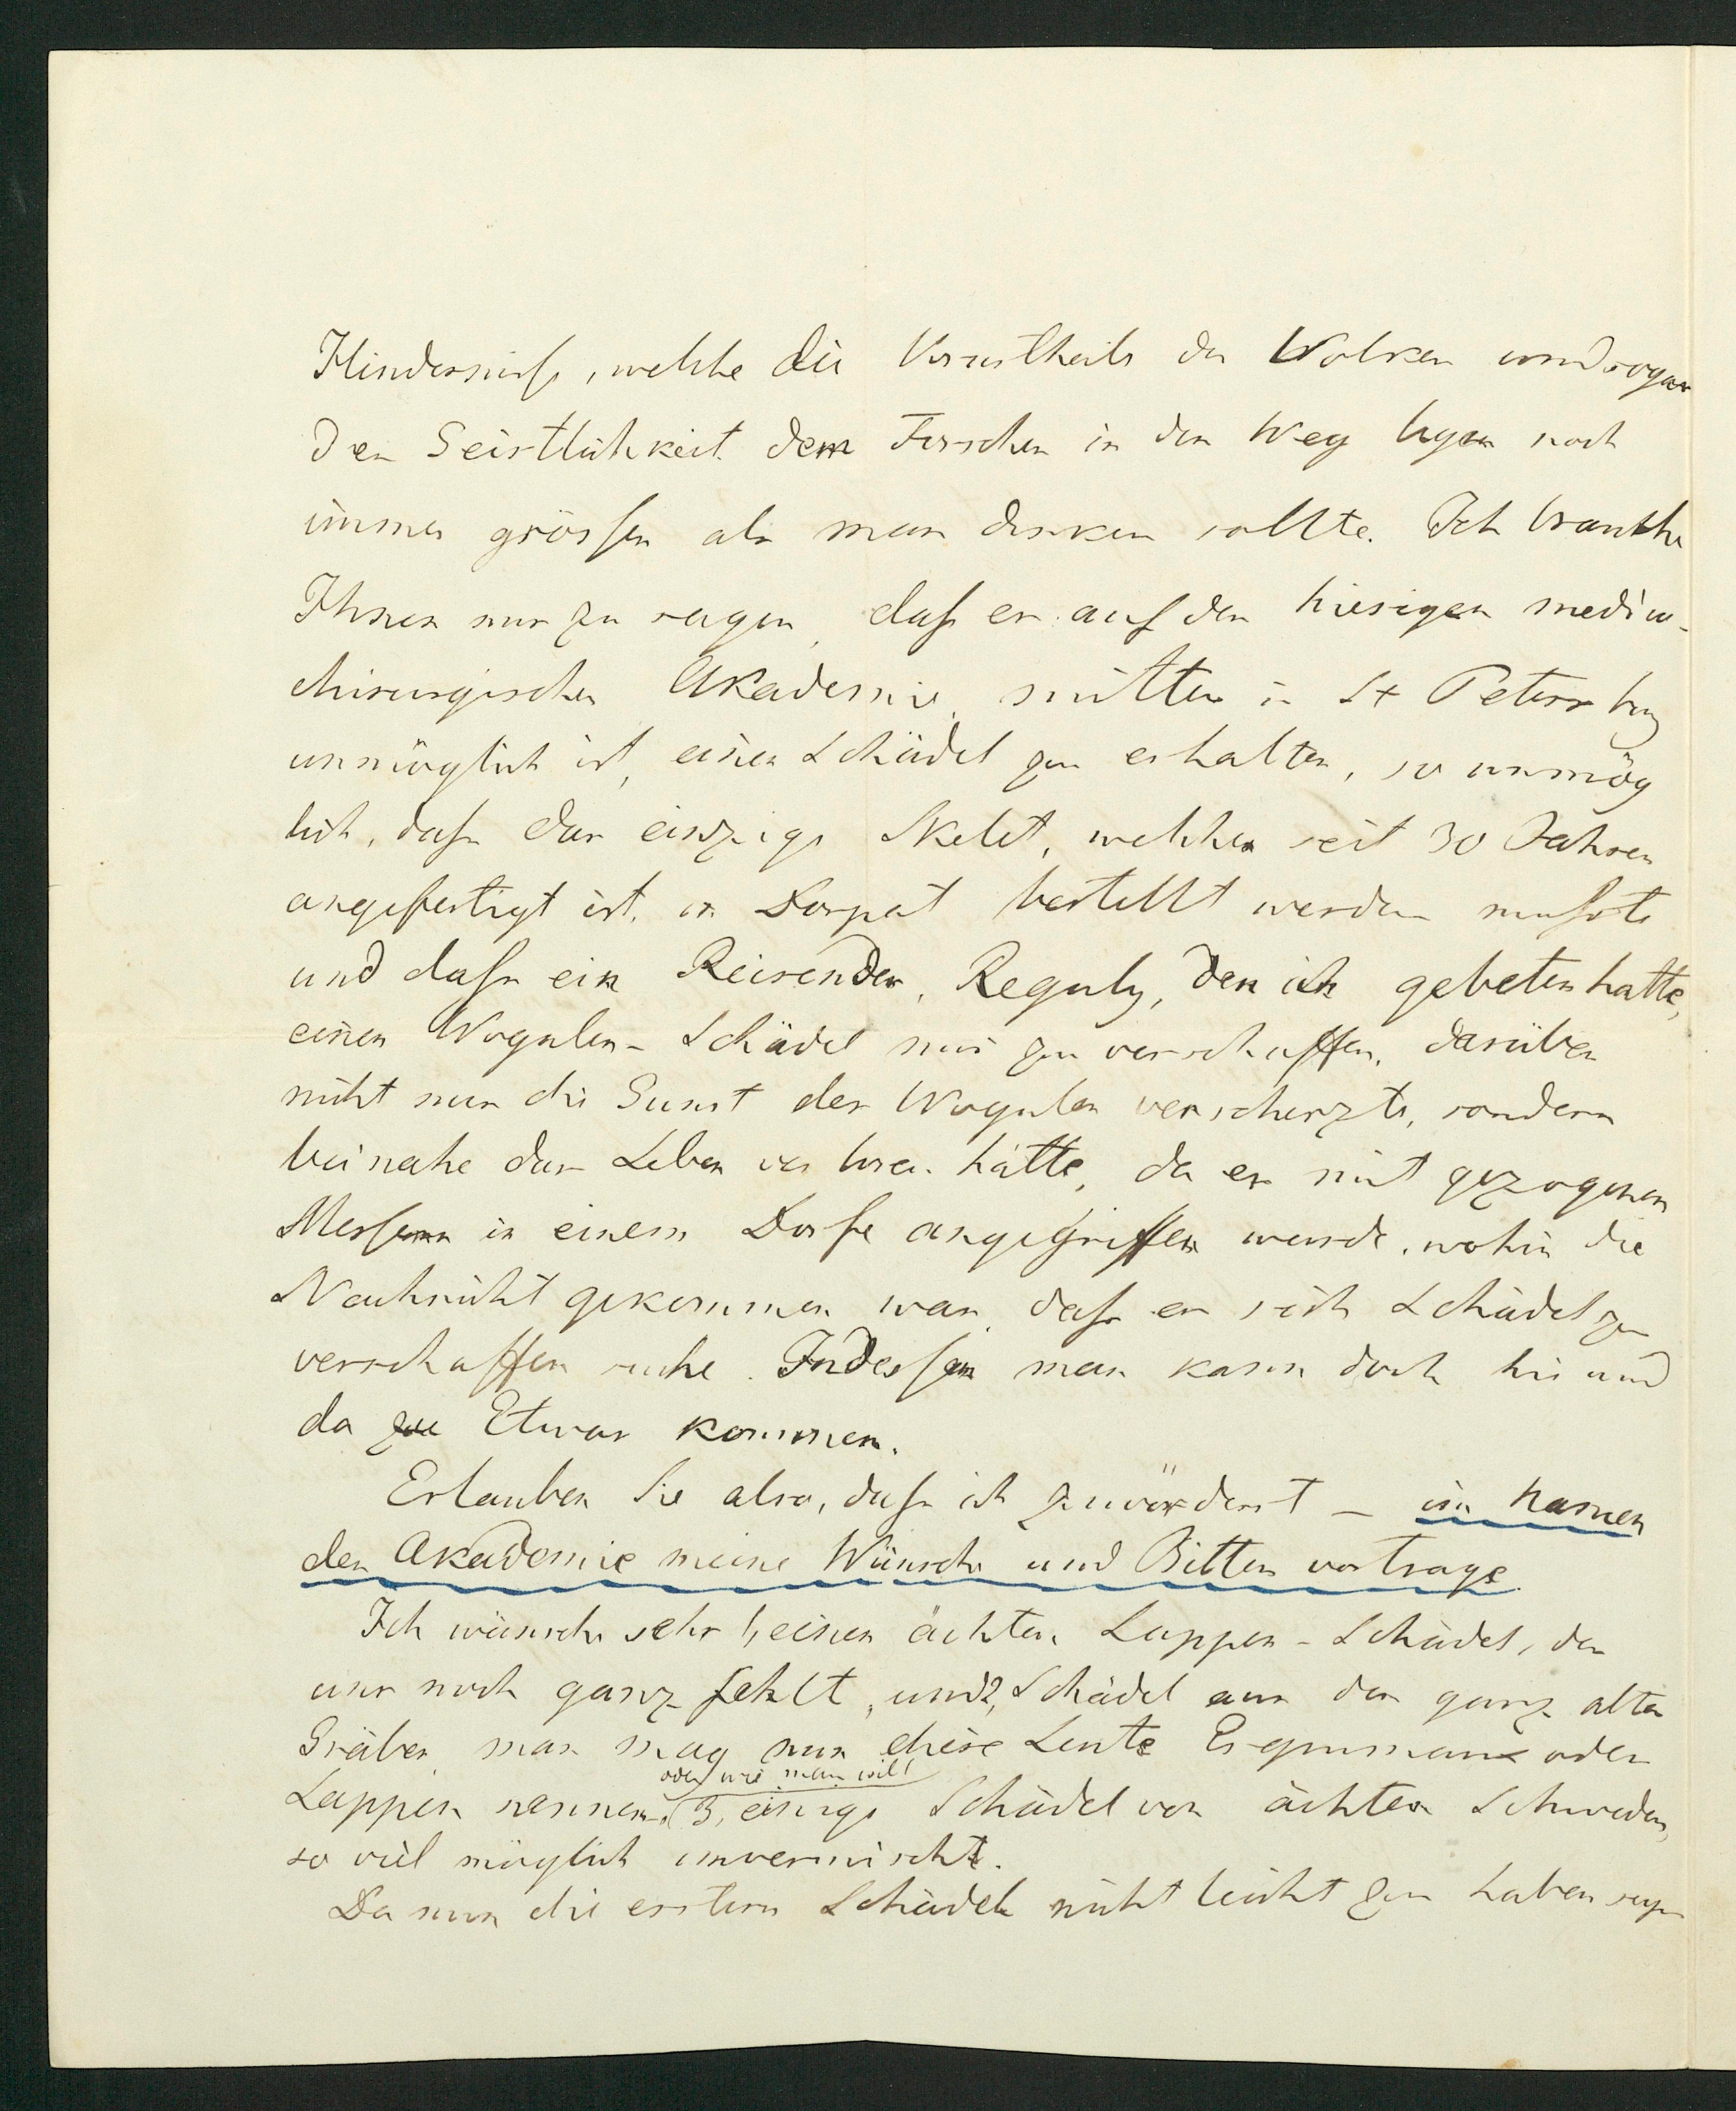 Hindernisse, welche die Vorurtheile des Volkes und sogar
der Geistlichkeit dem Forscher in den Weg legen noch
immer grösser als man denken sollte. Ich brauche
Ihnen nur zu sagen, dass es auf der hiesigen medico-
chirurgischen Akademie, mitten in St Petersburg
unmöglich ist, einen Schädel zu erhalten, so unmög
lich, dass das einzige Skelet, welches seit 30 Jahren
angefertigt ist, in Dorpat bestellt werden musste
und dass ein Reisender, Reguly, den ich gebeten hatte,
einen Wogulen-Schädel mir zu verschaffen, darüber
nicht nur die Gunst der Wogulen verscherzte, sondern
beinahe das Leben verloren hätte, da er mit gezogenen
Messern in einem Dorfe angegriffen wurde, wohin die
Nachricht gekommen war, dass er sich Schädel zu
verschaffen suche. Indessen man kann doch hie und
da zu Etwas kommen.
Erlauben Sie also, dass ich zuvörderst – im Namen
der Akademie meine Wünsche und Bitten vortrage.
Ich wünsche sehr 1, einen ächten Lappen-Schädel, der
uns noch ganz fehlt, und 2, Schädel aus den ganz alten
Gräbern, man mag nun diese Leute Esquimaux oder
oder wie man will
Lappen nennen. 3, einige Schädel von ächten Schweden,
so viel möglich unvermischt.
Da nun die erstern Schädel nicht leicht zu haben seyn